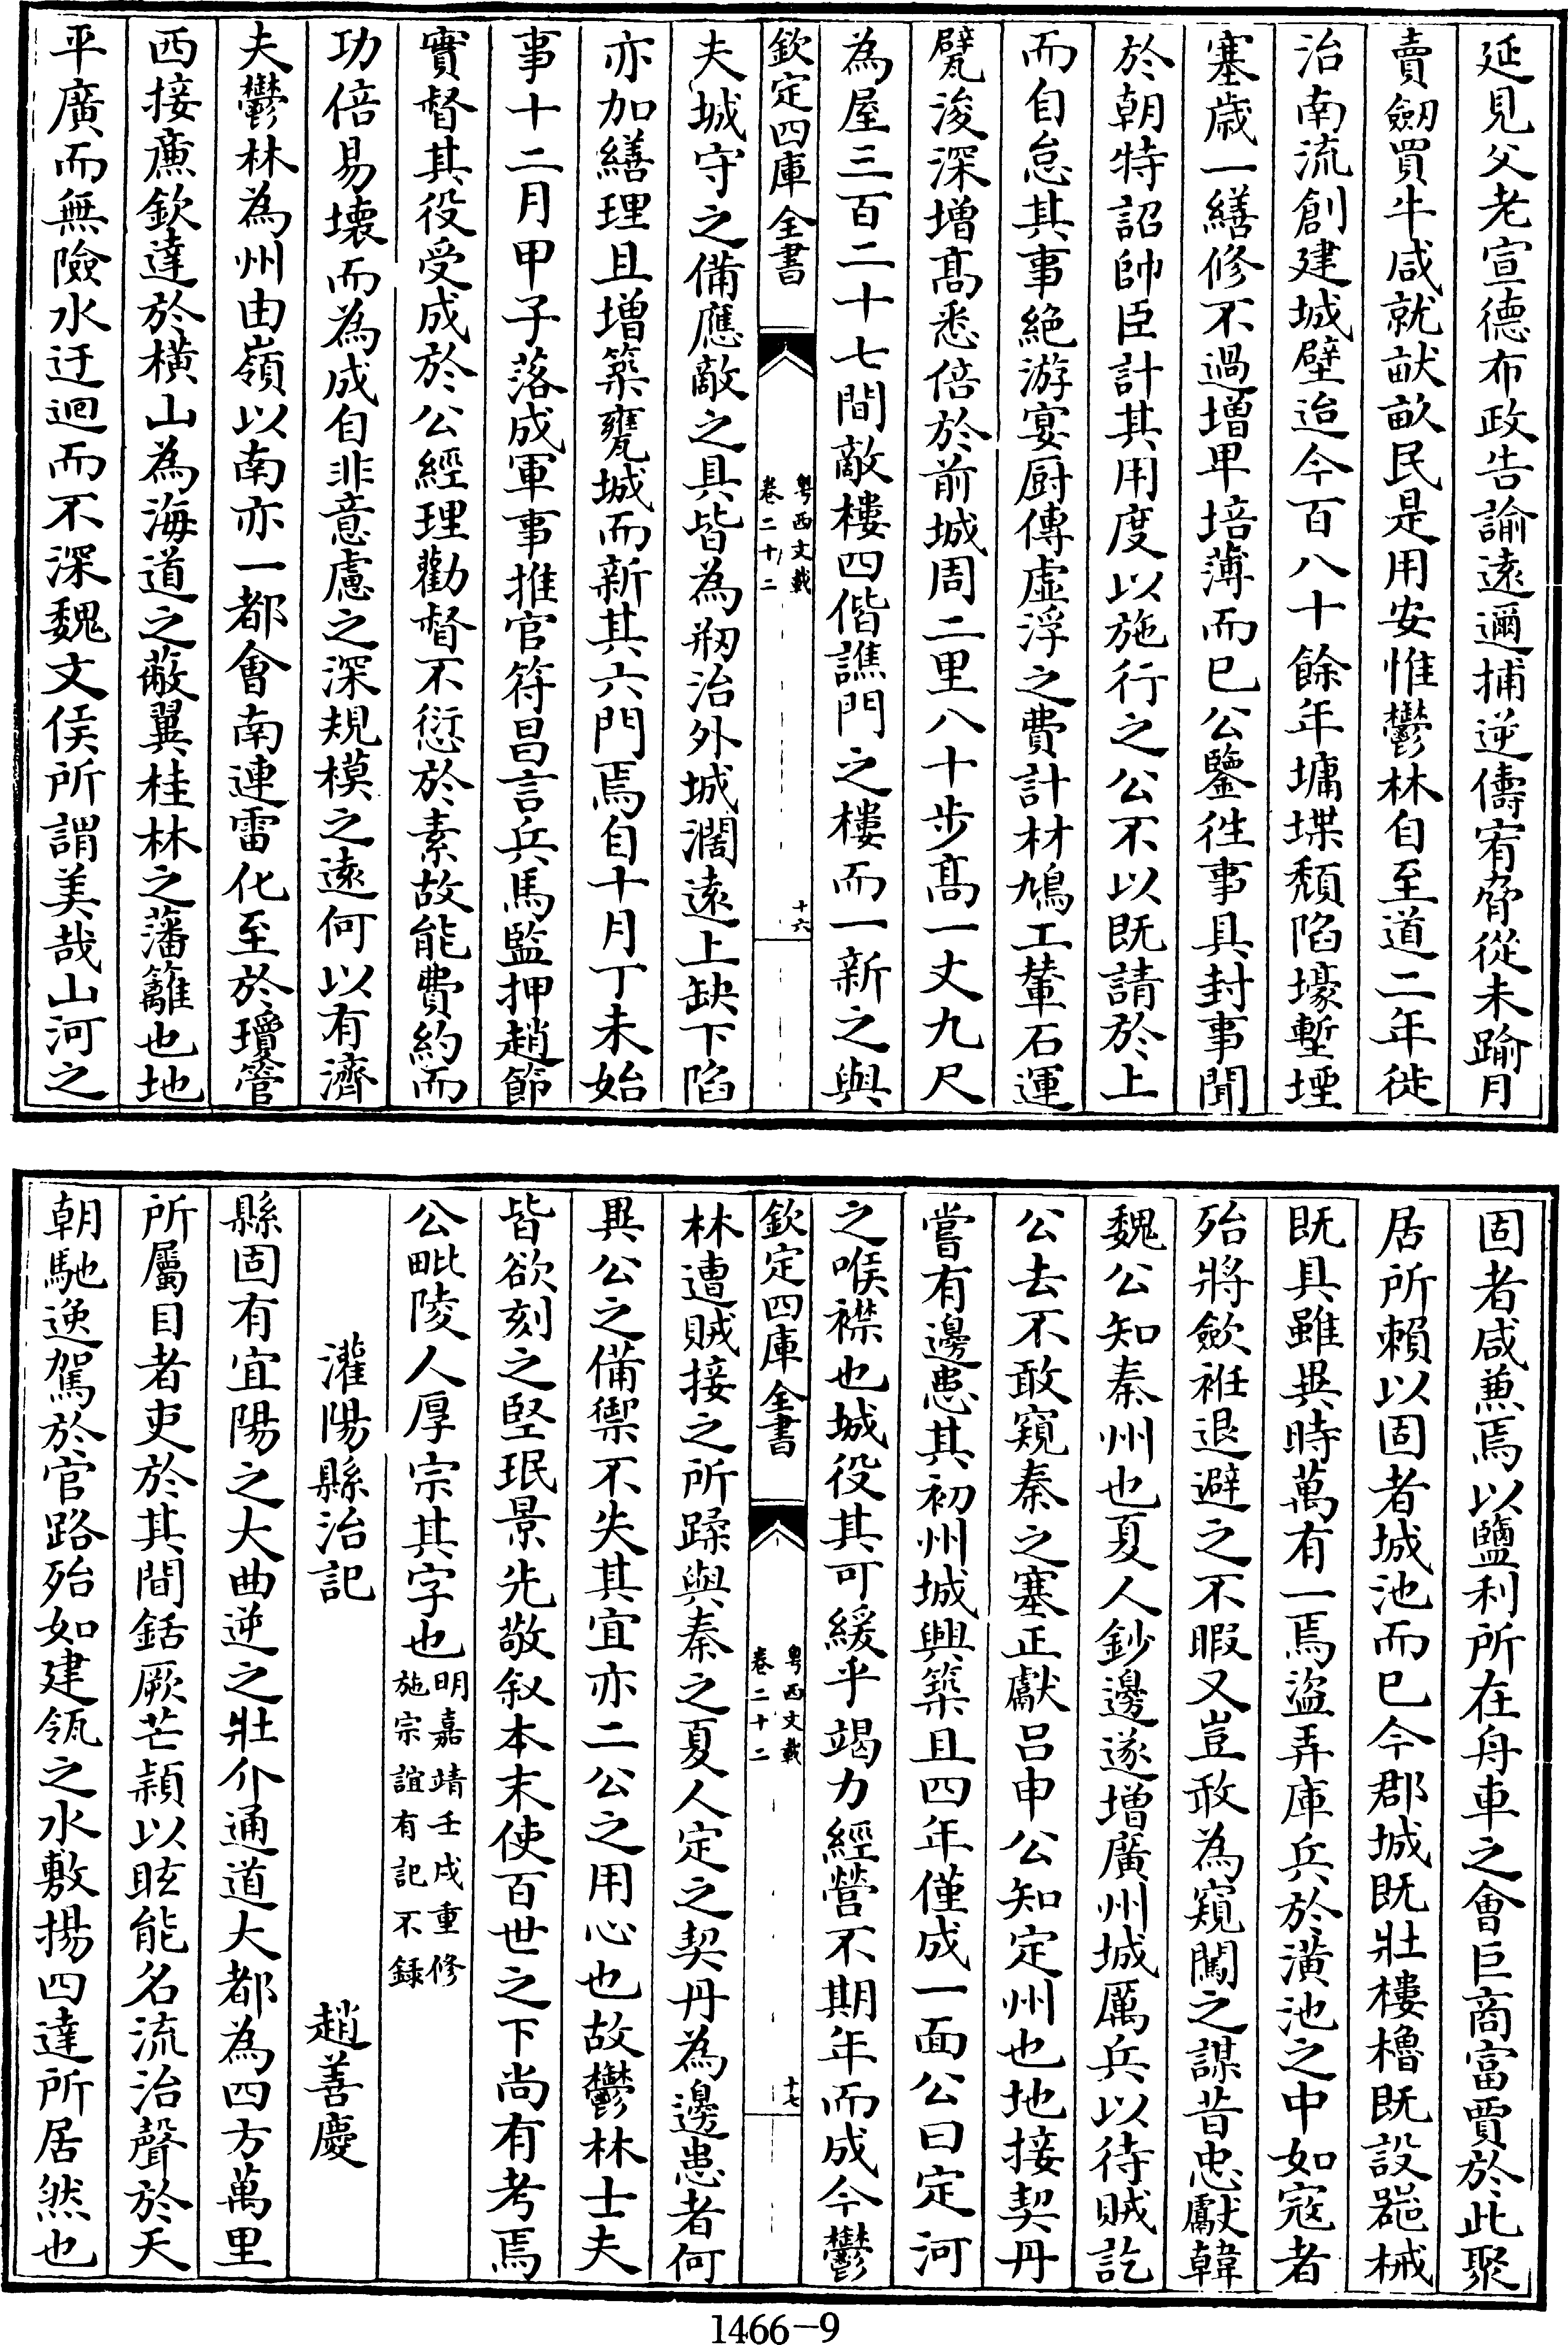 延見父老宣德布政告諭遠邇捕逆儔宥脅從未踰月
賣劒買牛咸就畎畝民是用安惟鬱林自至道二年徙
治南流創建城壁迨今百八十餘年墉堞頽陷壕塹堙
塞歳一繕修不過增卑培薄而已公鑒徃事具封事聞
於朝特詔帥臣計其用度以施行之公不以既請於上
而自怠其事絶游宴厨傳虛浮之費計材鳩工輦石運
甓浚深增髙悉倍於前城周二里八十步髙一丈九尺
為屋三百二十七間敵樓四偕譙門之樓而一新之與
欽定四庫全書
粤西文載
卷二十二
十六
夫城守之備應敵之具皆為剏治外城濶遠上缺下陷
亦加繕理且增築甕城而新其六門焉自十月丁未始
事十二月甲子落成軍事推官符昌言兵馬監押趙節
實督其役受成於公經理勸督不愆於素故能費約而
功倍易壊而為成自非意慮之深規模之遠何以有濟
夫鬱林為州由嶺以南亦一都會南連雷化至於瓊管
西接亷欽達於橫山為海道之蔽翼桂林之藩籬也地
平廣而無險水迂迴而不深魏文侯所謂美哉山河之
固者咸兼焉以鹽利所在舟車之會巨商富賈於此聚
居所賴以固者城池而已今郡城既壯樓櫓既設噐械
既具雖異時萬有一焉盜弄庫兵於潢池之中如宼者
殆將歛袵退避之不暇又豈敢為窺闖之謀昔忠獻韓
魏公知秦州也夏人鈔邊遂增廣州城厲兵以待賊訖
公去不敢窺秦之塞正獻吕申公知定州也地接契丹
嘗有邊患其初州城興築且四年僅成一面公曰定河
之喉襟也城役其可緩乎竭力經營不期年而成今鬱
欽定四庫全書
粤西文載
卷二十二
十七
林遭賊接之所蹂與秦之夏人定之契丹為邊患者何
異公之備禦不失其宜亦二公之用心也故鬱林士夫
皆欲刻之堅珉景先敬叙本末使百世之下尚有考焉
公毗陵人厚宗其字也明嘉靖壬戌重修施宗誼有記不錄
灌陽縣治記 趙善慶
縣固有宜陽之大曲逆之壯介通道大都為四方萬里
所屬目者吏於其間銛厥芒穎以眩能名流治聲於天
朝馳逸駕於官路殆如建瓴之水敷揚四達所居然也
1466-9